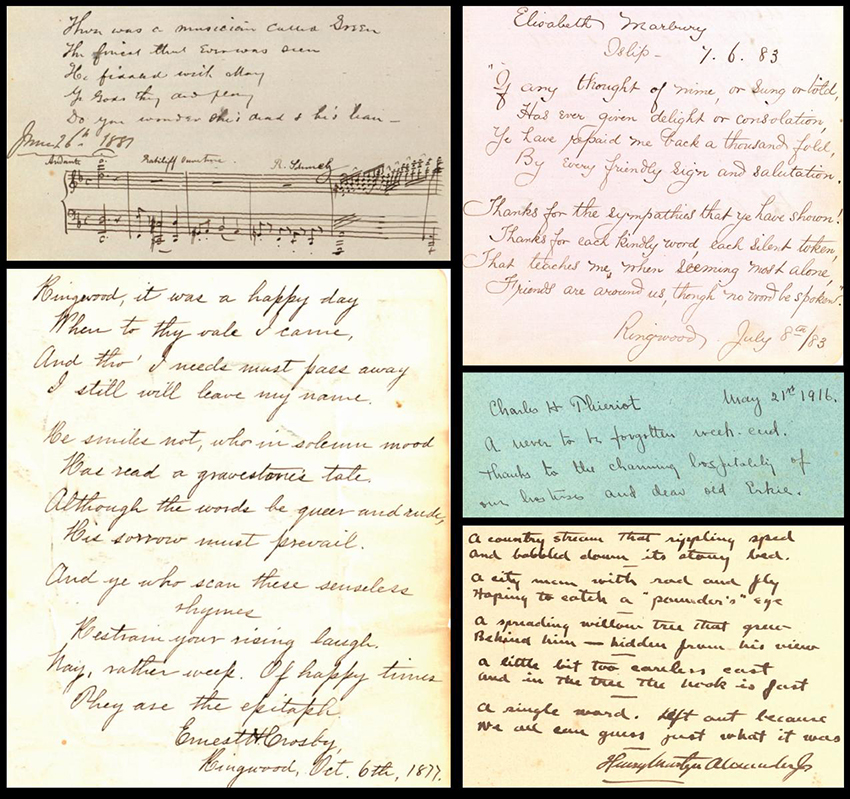 There was a musician called Green
The finest that Ever was seen
He fiddled with
Ye Gods they did
Do you wonder she's dead & he's
June 26th 1881
Andante Overture. R.
Ringwood, it was a happy day
When to thy vale I came,
And tho' I needs must pass away
I still will leave my name.
He smiles not, who in solemn mood
Has read a gravestone's tale.
Although the words be queer and rude,
His sorrow must prevail.
And ye who scan these senseless
rhymes
Restrain your rising laugh.
Nay, rather weep. Of happy times
They are the epitaph.
Ernest H Crosby,
Ringwood, Oct. 6th, 1877.
Elisabeth Marbury
Islip - 7. 6. 83
"If any thought of mine, or sung or told,
Has ever given delight or consolation,
Ye have repaid me back a thousand fold,
By every friendly sign and salutation.
Thanks for the sympathies that ye have shown!
Thanks for each kindly word, each silent token,
That teaches me, when seeming most alone,
Friends are around us, though no word be spoken."
Ringwood. July 8th/83
Charles H Thieriot May 21st 1916.
A never to be forgotten week-end.
Thanks to the charming hospitality of
our hostess and dear old Erkie.
A country stream that rippling sped
And babbled down its stony bed.
A city man with rod and fly
Hoping to catch a "pounder's" eye
A spreading willow tree that grew
Behind him — hidden from his view
A little bit too careless cast
And in the tree the hook is fast
A single word. Left out because
We all can guess just what it was
Henry Martyn Alexander Jr